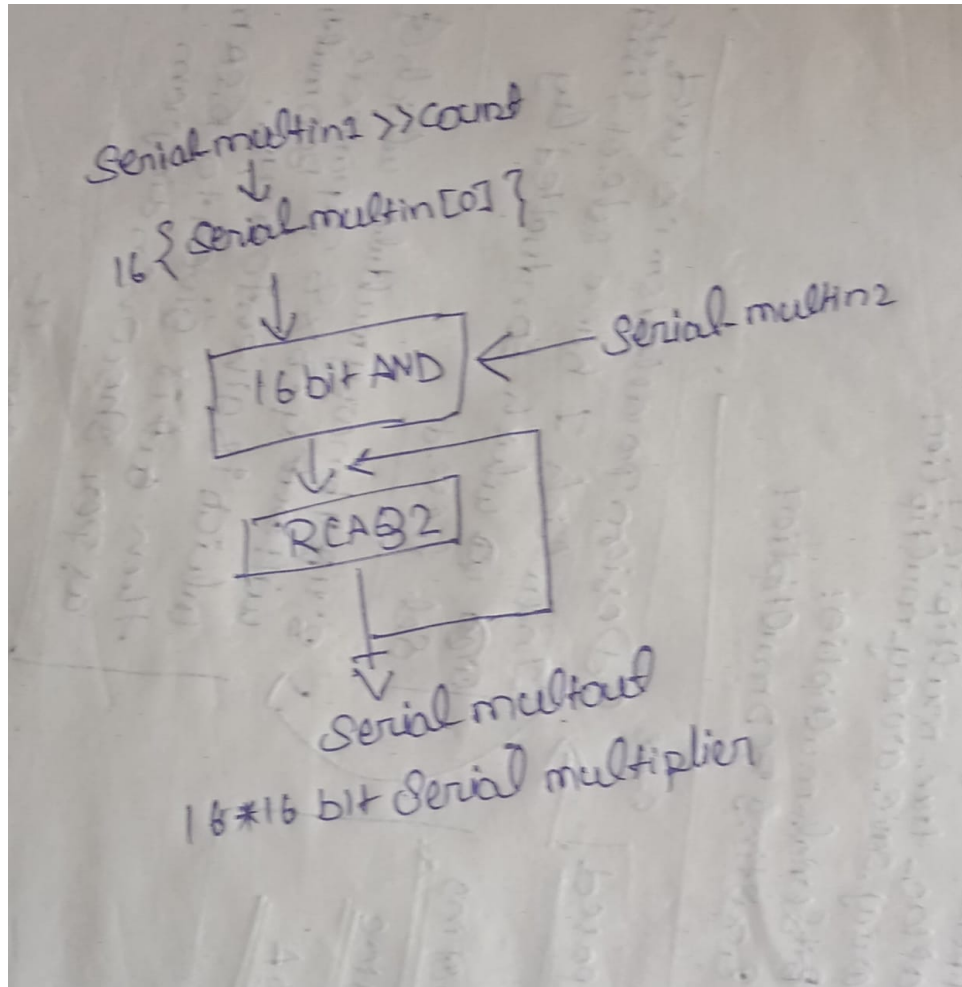 Serial multin1 >> count
16 { Serial multin [0] }
Serial multin2
16 bit AND
RCA32
Serial multout
16*16 bit Serial multiplier